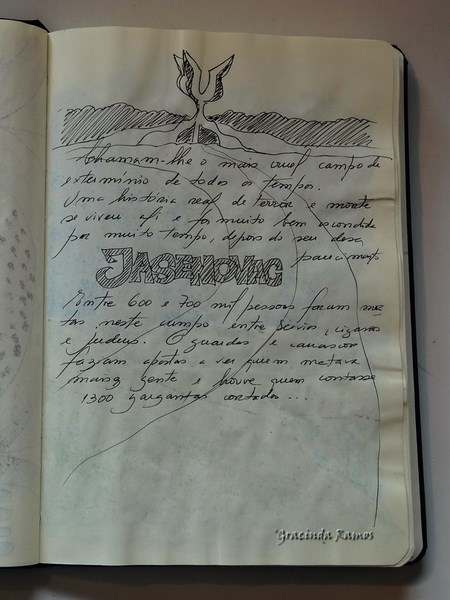 chamam-lhe o mais cruel campo de
extermínio de todos os tempos.
Uma história real de terror e morte
se viveu ali e foi muito bem escondida
por muito tempo, depois do seu desa
parecimento
JASENOVAC
Entre 600 e 700 mil pessoas foram mor
tas neste campo entre sérvios, ciganos
e judeus. O guardas e carrascos
faziam apostas a ver quem matava
mais gente e houve quem contasse
1300 gargantas cortadas...
Gracinda Ramos